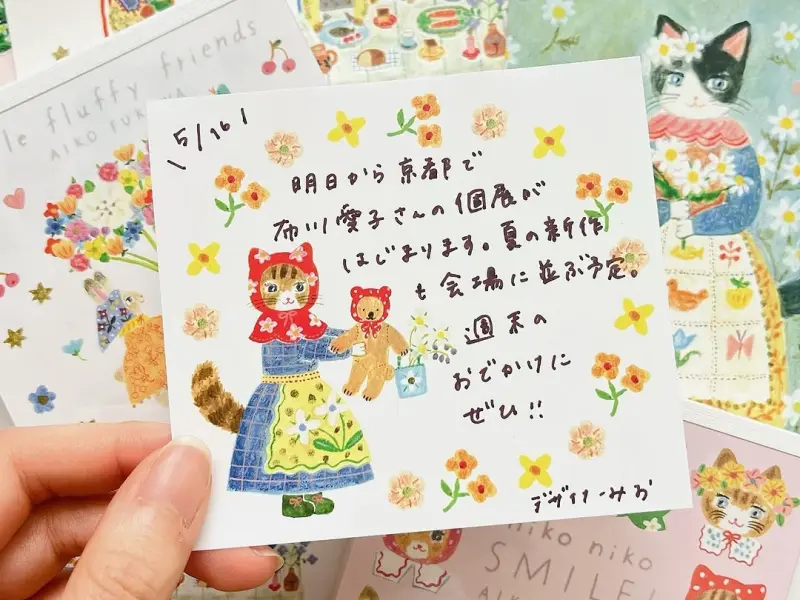 le fluffy friends
AIKO FUKAWA
5/16!
明日から京都で
布川愛子さんの個展が
はじまります。夏の新作
も会場に並ぶ予定。
週末の
おでかけに
ぜひ!!
デザイナーみお
niko niko
SMILE!